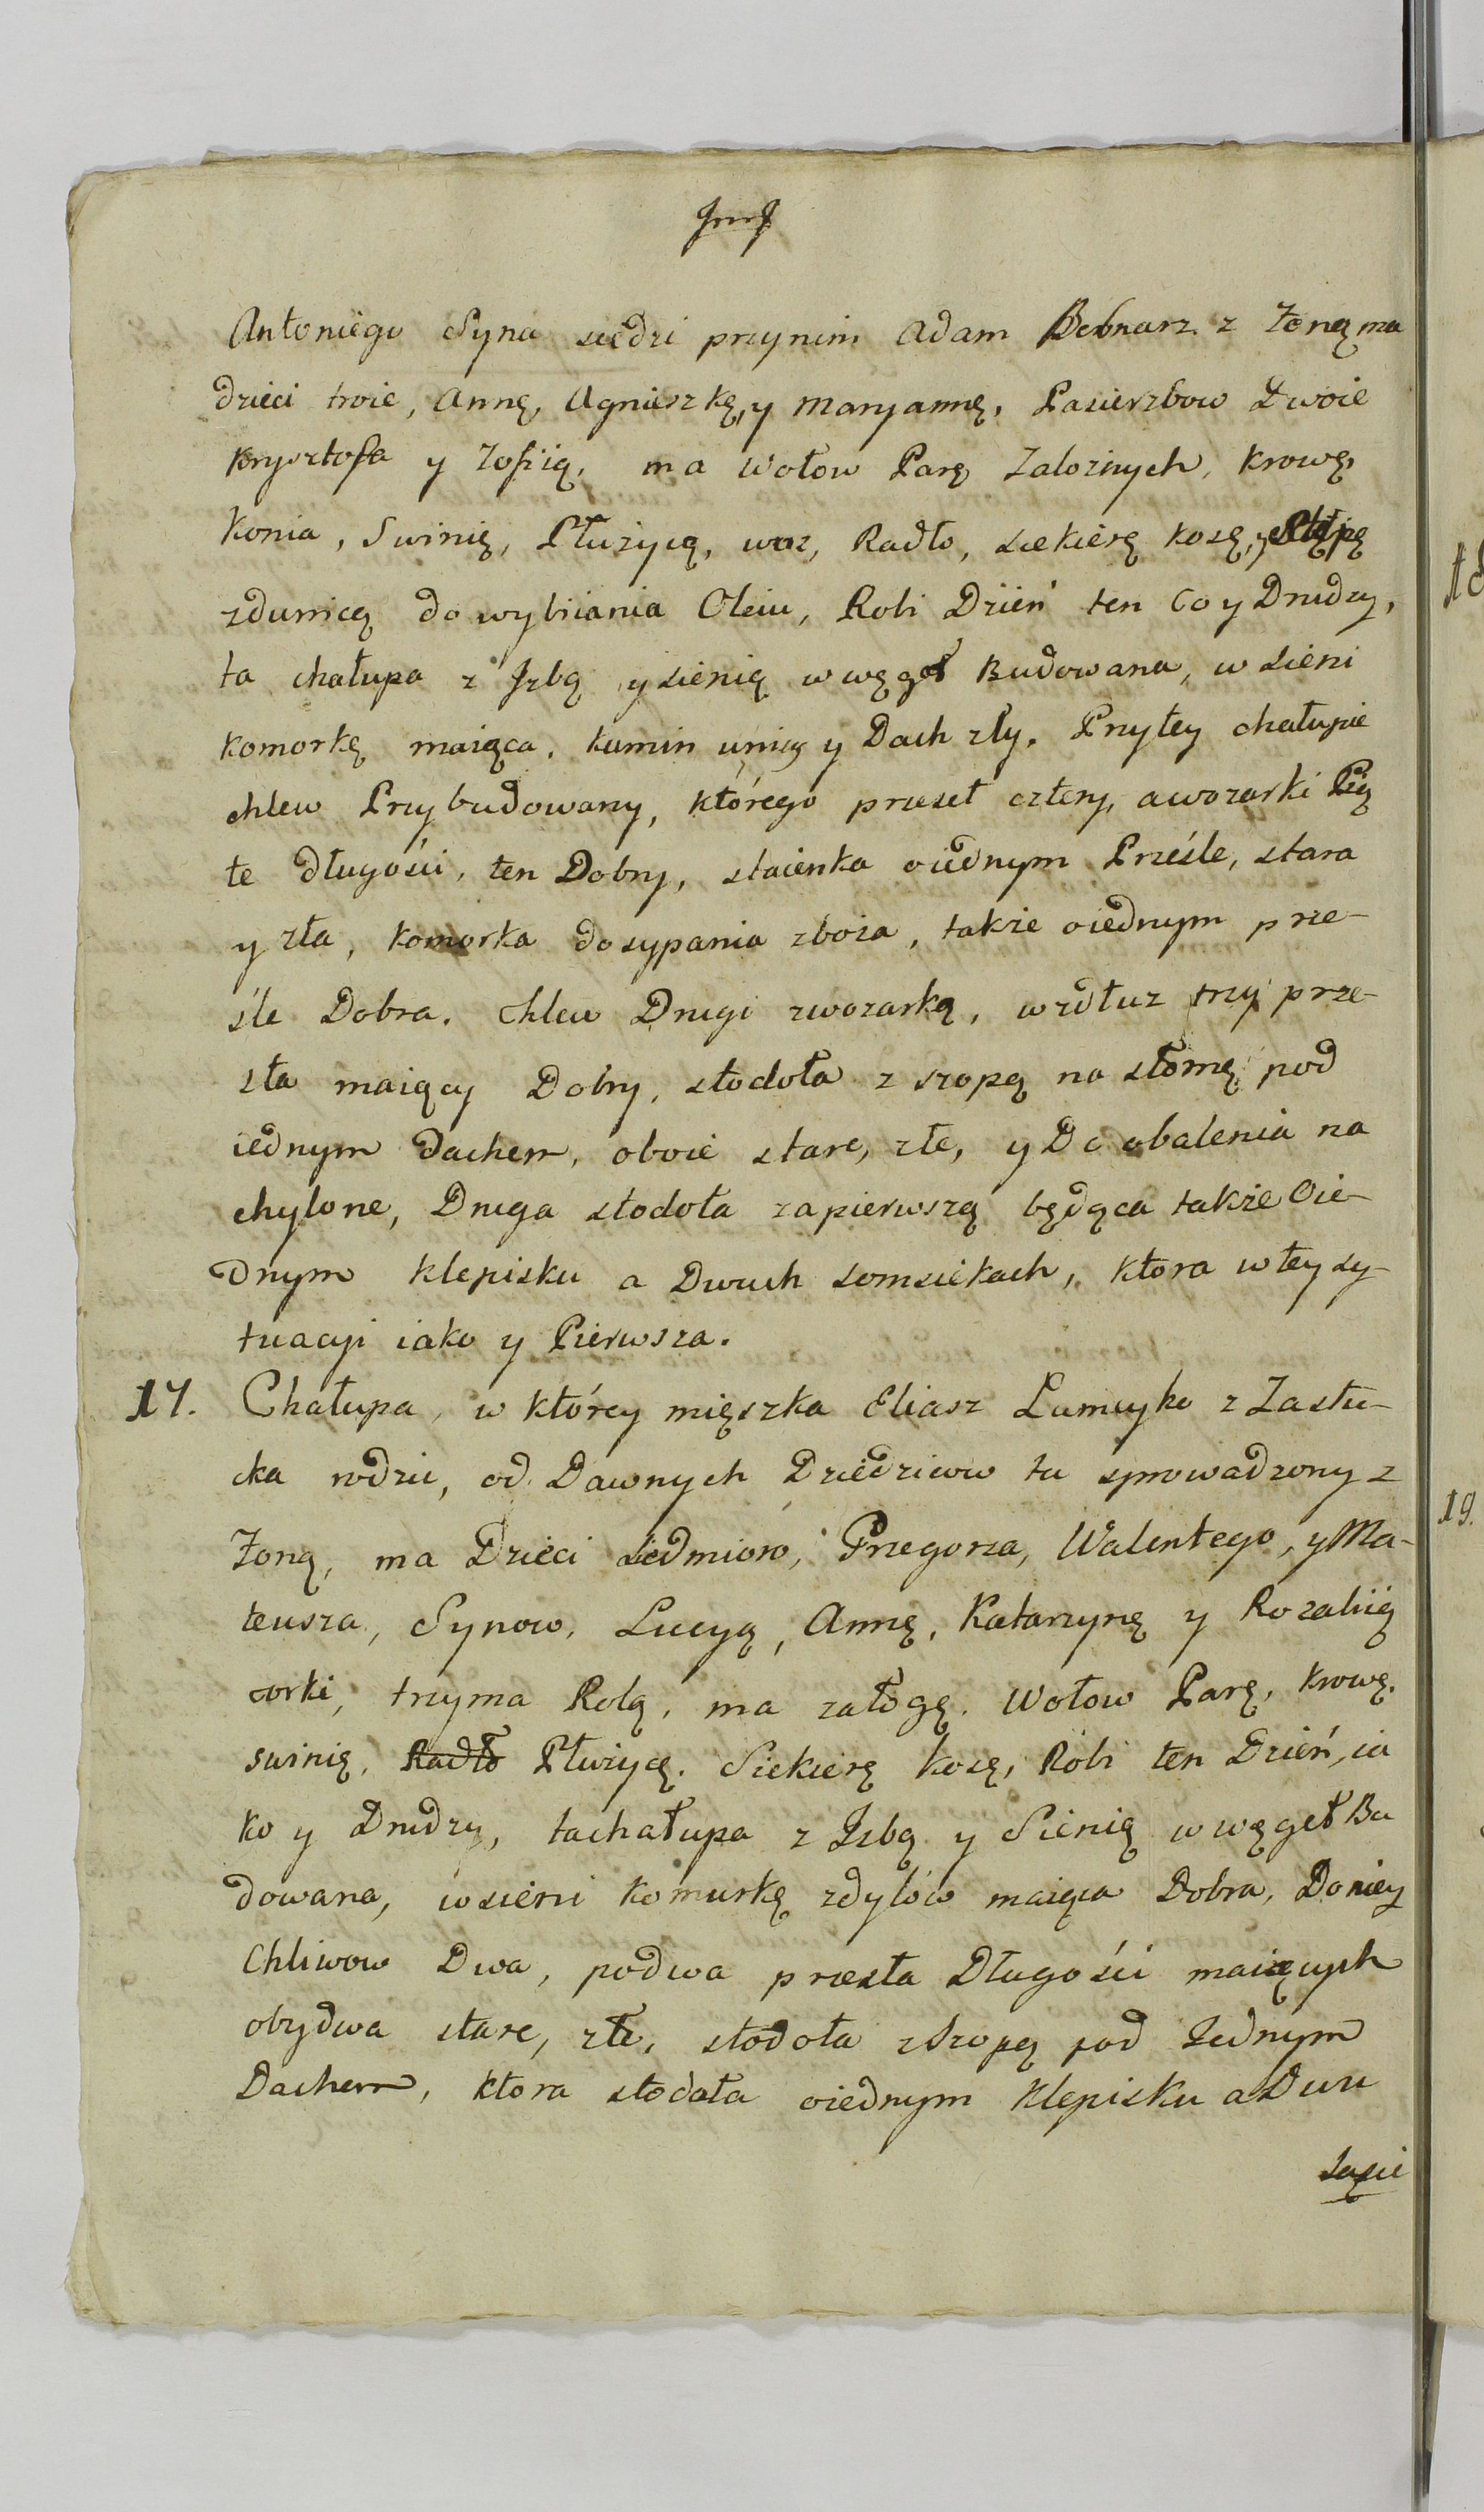 Antoniego Syna siedzi przynim Adam Bebnarz z Żoną ma
dzieci troie, Annę, Agnieszkę, y Maryannę, Pasierzbow Dwoie
Krysztofa y Zofiią, ma Wołow Parę Założnych, krowę,
Konia, Swinię, Płużycę, woz, Radło, siekierę kosę, y Stępę
zdunicą do wybiiania Oleiu, Robi Dzień ten Co y Drudzy,
ta chałupa z Izbą y sienią w węgeł Budowana, w sieni
komorkę maiąca, kumin y Dach zły. Przytey chałupie
chlew Przybudowany, którego przeseł cztery, a wozarki Pią
te długości, ten Dobry, staienka oiednym Prześle, stara
y zła, komorka do sypania zboża, także oiednym prze-
śle Dobra. Chlew Drugi zwozarką, wzdłuz trzy prze-
sła maiący Dobry, stodoła z szopą na słomę pod
iednym dachem, oboie stare, złe, y Do obalenia na
chylone, Druga stodoła zapierwszą będąca także Oie-
dnym klepisku a Dwuch somsiekach, ktora w tey sy-
tuacyi iako y Pierwsza.
17. Chałupa, w ktòrey mięszka Eliasz Lamcyko z Zastu-
cka rodzic, od Dawnych Dziedzicow tu sprowadzony z
Żoną, ma Dzieci siedmioro, Grzegorza, Walentego, y Ma-
teusza, Synow, Lucyą, Annę, Katarzynę y Rozaliią
corki, trzyma Rolą, ma załogę. Wołow Parę, krowę,
swinię, Radło Płużycę. Siekierę kosę, Robi ten Dzień, ia
ko y Drudzy, tachałupa z Izbą y Sienią w węgeł Bu
dowana, w sieni komurkę zdylów maiąca Dobra, Do niey
Chliwow Dwa, podwa przesła Długości maiących
obydwa stare, złe, stodoła z Szopą pod Iednym
Dachem, ktora stodoła oiednym klepisku a Dwu
sąsie
19.